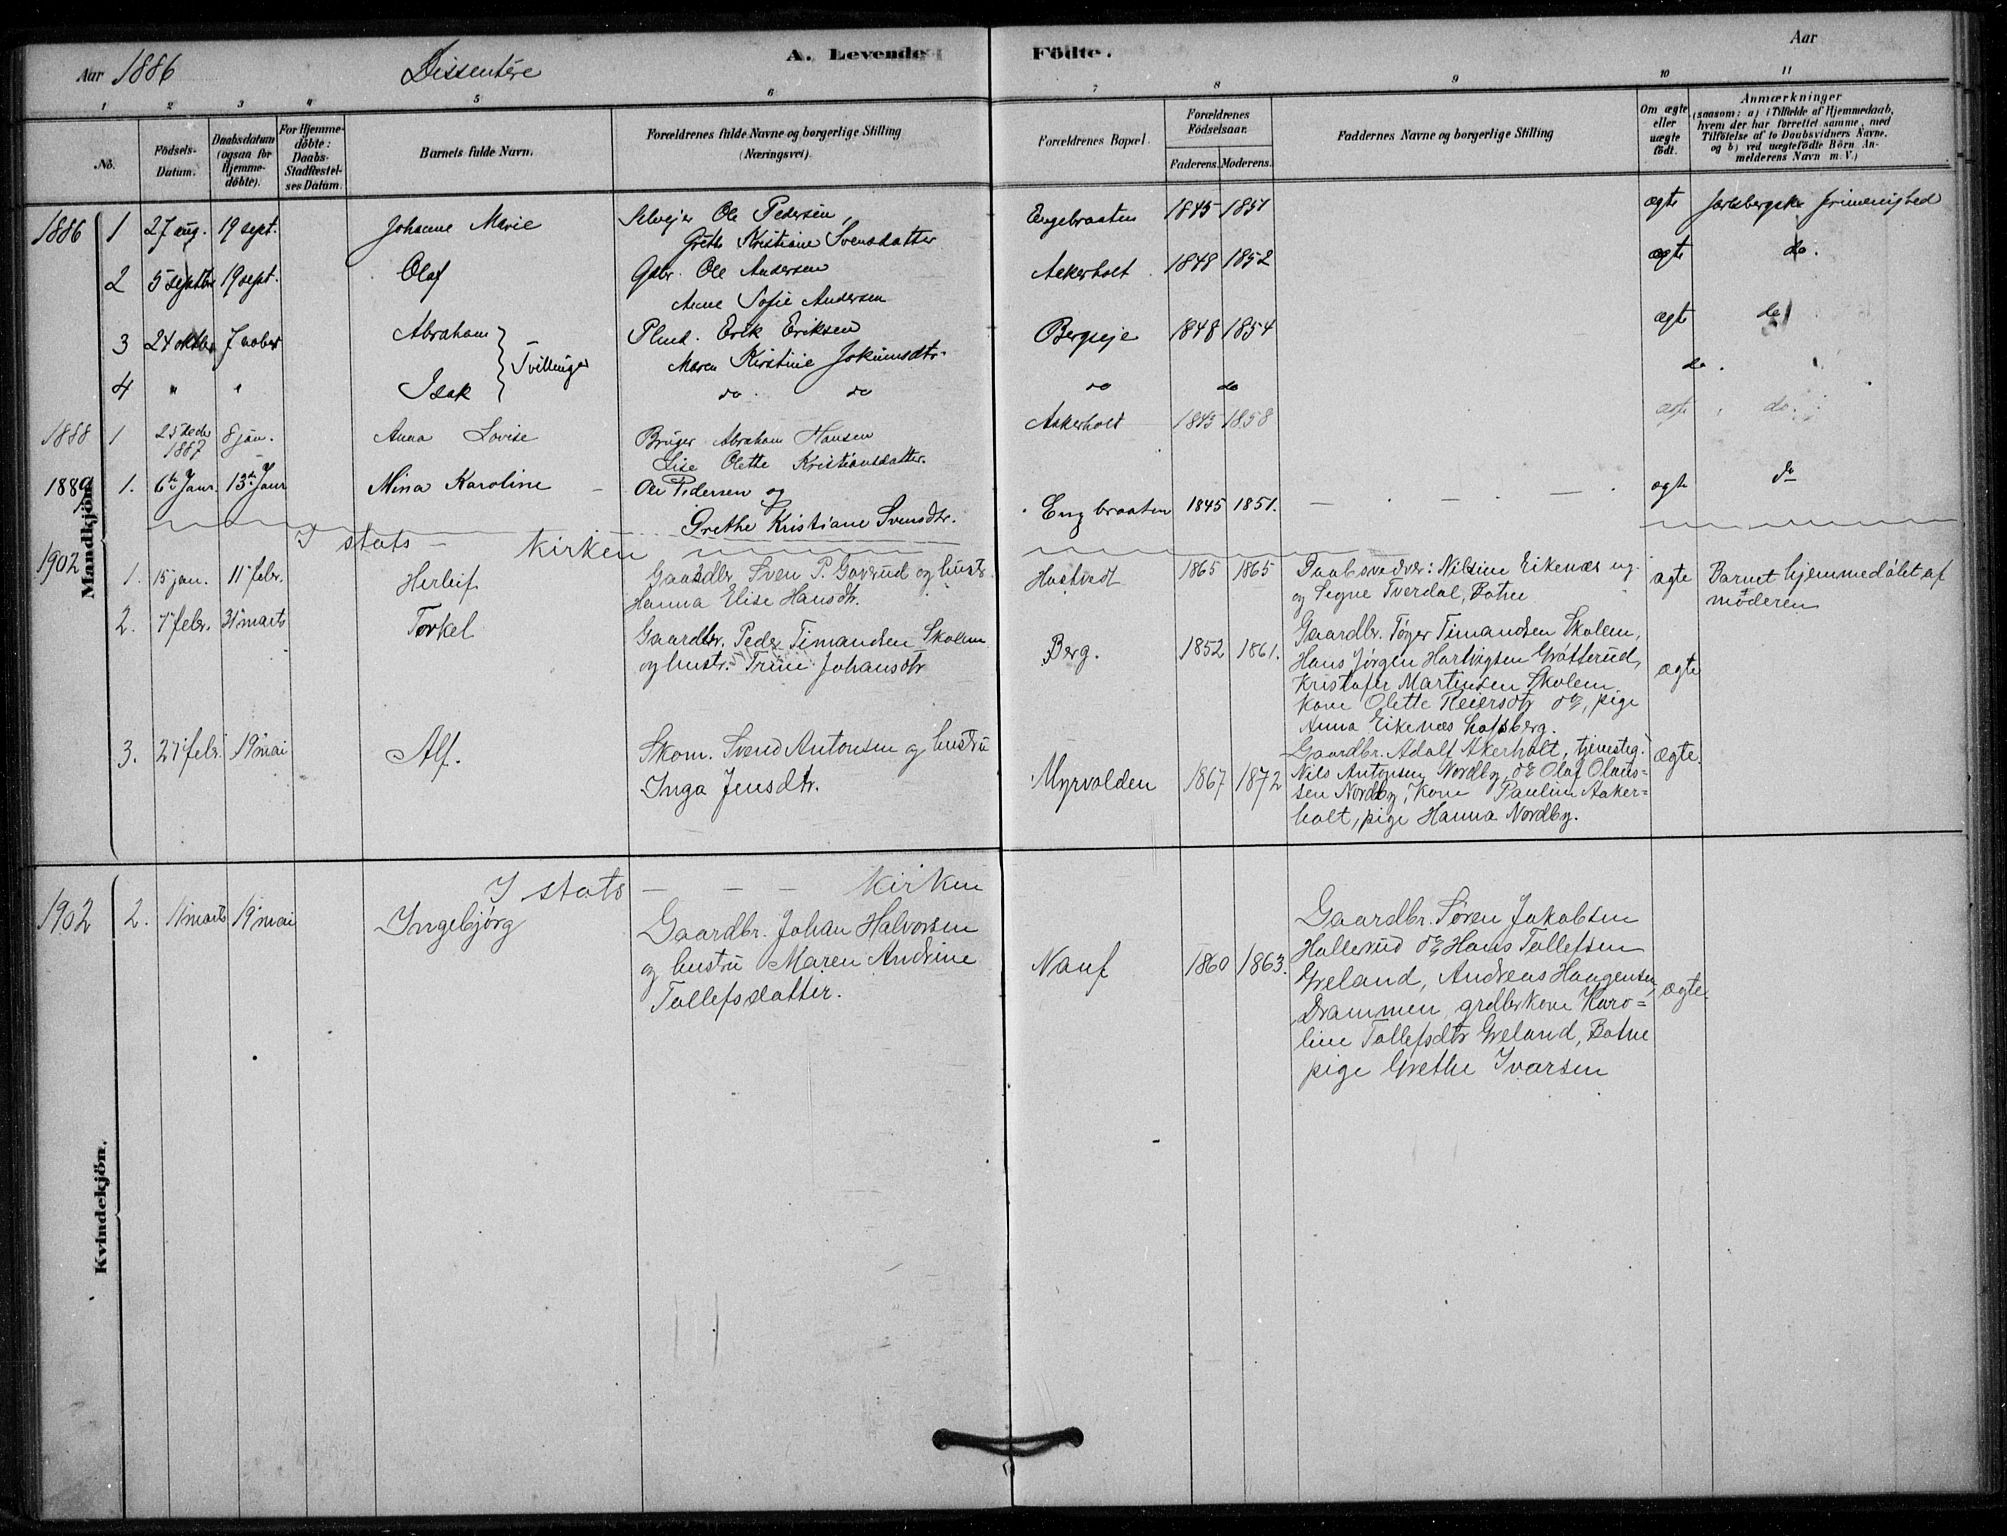 Aar 1886 Dissentere A. Levende Födte. Aar
1 2 3 4 5 6 7 8 9 10 11
No. Födsels-Datum. Daabsdatum (ogsaa för Hjemme-döbte). For Hjemme-döbte: Daabs-Stadfæstel-ses Datum. Barnets fulde Navn. Forældrenes fulde Navne og borgerlige Stilling (Næringsvei). Forældrenes Bopæl. Forældrenes Fødselsaar. Faderens. Moderens. Faddernes Navne og borgerlige Stilling Om ægte eller uægte födt. Anmærkninger (saasom: a) i Tilfælde af Hjemmedaab, hvem der har forrettet samme, med Tilföielse af to Daabsvidners Navne, og b) ved uægtefödte Börn An-melderens Navn m. V.)
Mandkjön.
1886 1 27 aug. 19 sept. Johanne Marie Selvejer Ole Pedersen, Engebraaten 1845 1851 ægte Jarlsbergske frimenighed
Grethe Kristiane Svensdatter
2 5 septbr 19 sept. Olaf Gdbr. Ole Andersen Aakerholt 1848 1852 ægte do.
Anne Sofie Andersen
3 24 oktbr 7 nobr Abraham Tvillinger Erik Eriksen Bergseje 1848 1854 ægte do
Maren Kirstine Jokumsdtr.
4 " " Isak do do do do do.
1888 1 25 decbr 1887 8 jan. Anna Lovise Bruger Abraham Hansen Aakerholt 1845 1858 ægte do.
Lise Olette Kristiansdatter.
1889 1. 6te Janr. 13de Janr Mina Karoline – Ole Pedersen og Engbraaten 1845 1851. – – – – ægte do
Grethe Kristiane Svensdtr.
I stats – kirken
1902 1. 15 jan. 11 febr. Herleif Gaardbr. Sven P. Goverud og hustr. Hustvedt 1865 1865 Daabsvidner: Nilsine Eikenæs og ægte Barnet hjemmedøbt af
Hanna Elise Hansdtr. og Signe Tverdal, Botne moderen
2. 7 febr. 31 marts Torkel Gaardbr. Peder Timandsen Skolem Berg. 1852 1861. Gaardbr. Tøger Timandsen Skolem, ægte
og hustr. Trine Johansdtr Hans Jørgen Hartvigsen Gråtterud,
Kristofer Martinsen Skolem
Kone Olette Reiersdtr og, pige
Anna Eikenæs Hofsberg.
3. 27 febr. 19 mai Alf. Skom. Svend Antonsen og hustru Myrvolden 1867 1872 Gaardbr. Adolf Akerholt, tjenesteg. ægte.
Inga Jensdtr. Nils Antonsen Nordby, og Olaf Olaus=
sen Nordby, Kone Pauline Aaker=
holt, pige Hanna Nordby.
Kvindekjön.
I stats – – – kirken
1902 2. 11 marts 19 mai Ingebjørg Gaardbr. Johan Halvorsen Nauf 1860 1863. Gaardbr. Søren Jakobsen ægte
og hustru Maren Andrine Hallerud og Hans Tollefsen
Tollefsdatter. Greland, Andreas Haugensen,
Drammen, grdbrkone Karo=
line Tollefsdtr Greland, Botne
pige Grethe Ivarsen